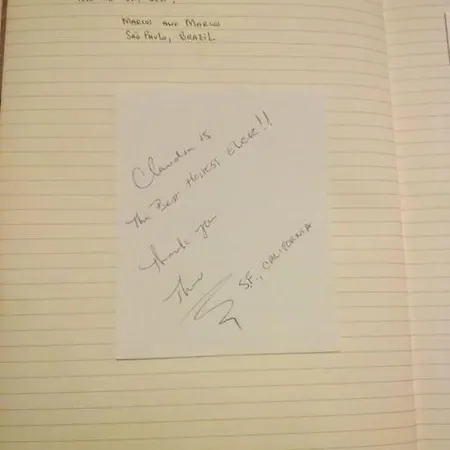 Marcos and Marcus
São Paulo, Brazil
Claudia is
The Best Hostest Ever!!
Thank you
S.F., CALIFORNIA